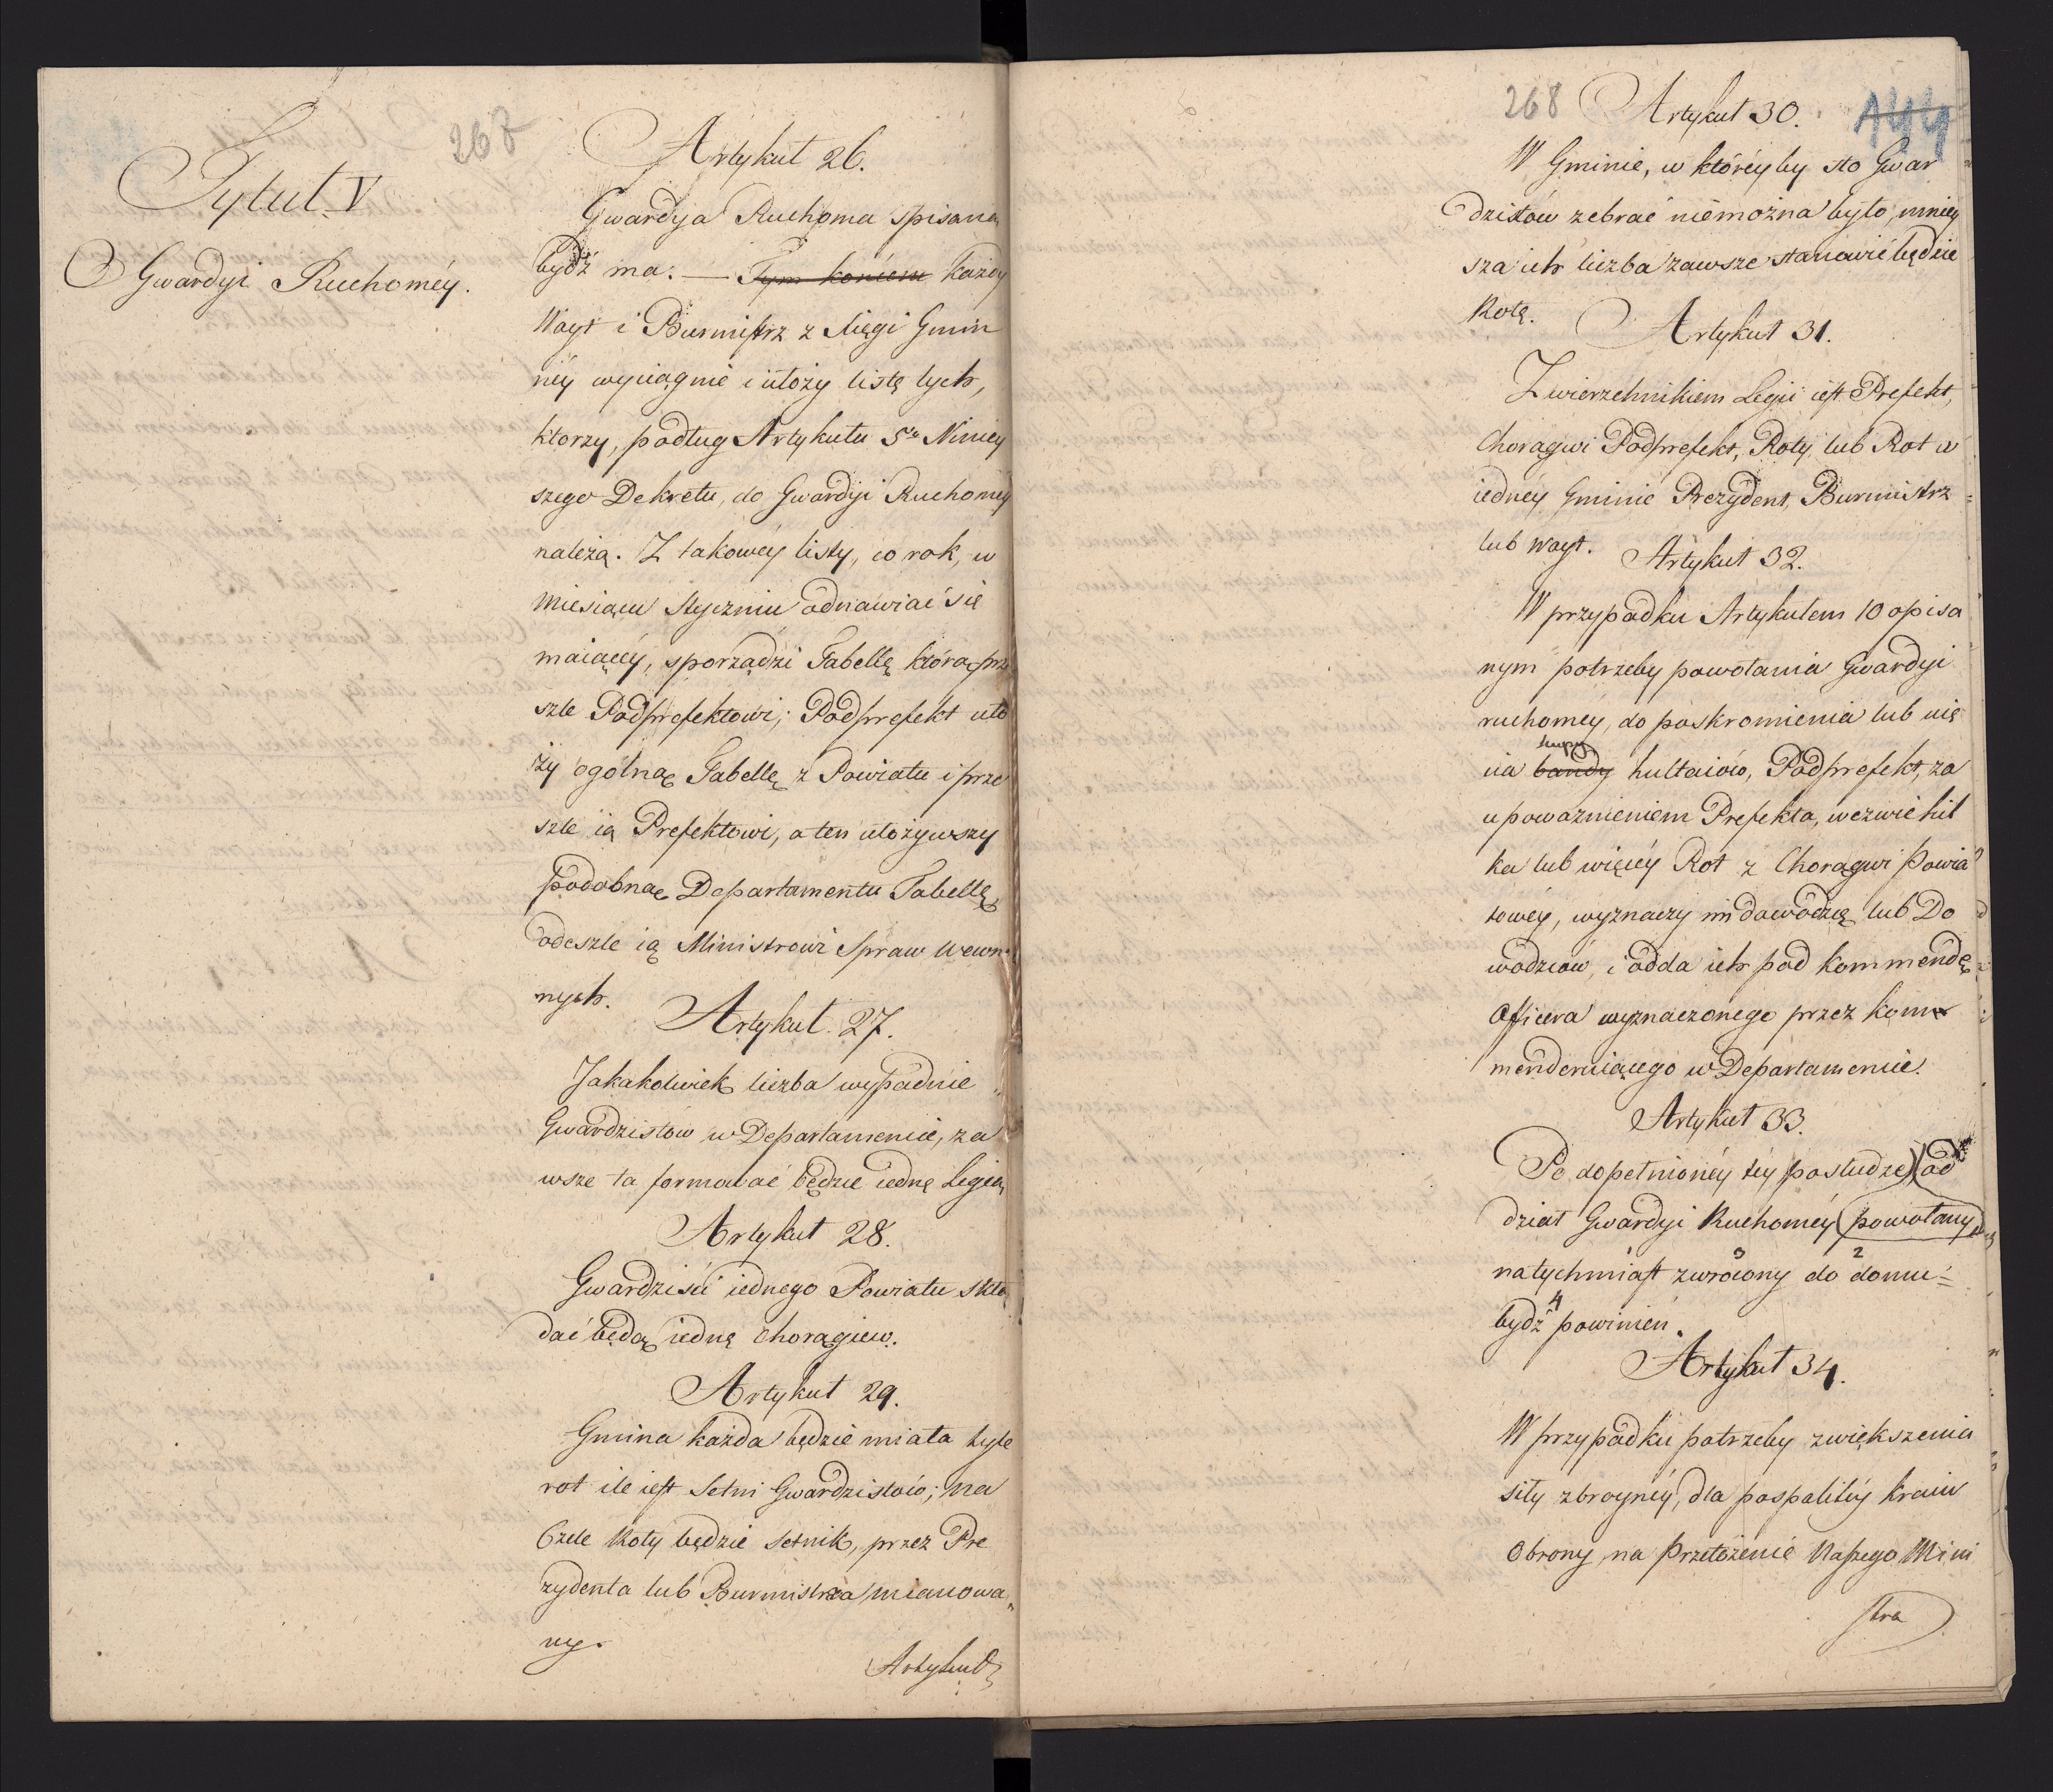 267
Tytuł V
O Gwardyi Ruchoméy.
Artykuł 26.
Gwardya Ruchoma spisana
bydź ma. — Tym końcem każdy
Woyt i Burmistrz z Xięgi Gmin
néy wyciągnie i ułoży listę tych,
ktorzy, podług Artykułu 5go Niniey
szego Dekretu, do Gwardyi Ruchoméy
należą. Z takowéy listy, co rok, w
Miesiącu Styczniu odnawiać się
maiącéy, sporządzi Tabellę którą prze
szle Podprefektowi; Podprefekt uło
ży ogólną Tabellę z Powiatu i prze
szle ią Prefektowi, a ten ułożywszy
podobną Departamentu Tabellę,
odeszle ią Ministrowi Spraw Wewn.
nych.
Artykuł 27.
Jakakolwiek liczba wypadnie
Gwardzistów w Departamencie, za
wsze ta formować będzie iednę Legią
Artykuł 28.
Gwardziści iednego Powiatu skła
dać będą iednę chorągiew.
Artykuł 29.
Gmina każda będzie miała tyle
rot ile iest Setni Gwardzistów; na
Czele Roty będzie Setnik, przez Pre
zydenta lub Burmistrza mianowa
ny.
Artykuł
268
144
Artykuł 30.
W Gminie, w któréy by sto Gwar
dzistów zebrać niemożna było, mniey
sza ich liczba zawsze stanowić będzie
Rotę.
Artykuł 31.
Zwierzchnikiem Legii iest Prefekt,
Chorągwi Podprefekt, Roty lub Rot w
iednéy Gminie Prezydent, Burmistrz
lub Woyt.
Artykuł 32.
W przypadku Artykułem 10 opisa
nym potrzeby powołania Gwardyi
ruchoméy, do poskromienia lub uię
kupy
cia bandy hultaiów, Podprefekt, za
upoważnieniem Prefekta, wezwie kil
ka lub więcéy Rot z Chorągwi Powia
towéy, wyznaczy im dowódzcę lub Do
wódzców, i odda ich pod kommendę
Officera wyznaczonego przez kom
menderuiącego w Departamencie.
Artykuł 33.
Po dopełnionéy téy posłudze, od
dział Gwardyi Ruchoméy powołany
1 3 2
natychmiast zwrócony do domu
4
bydź powinien.
Artykuł 34.
W przypadku potrzeby zwiększenia
siły zbroynéy, dla pospolitéy kraiu
Obrony, na Przełożenie Naszego Mini
stra